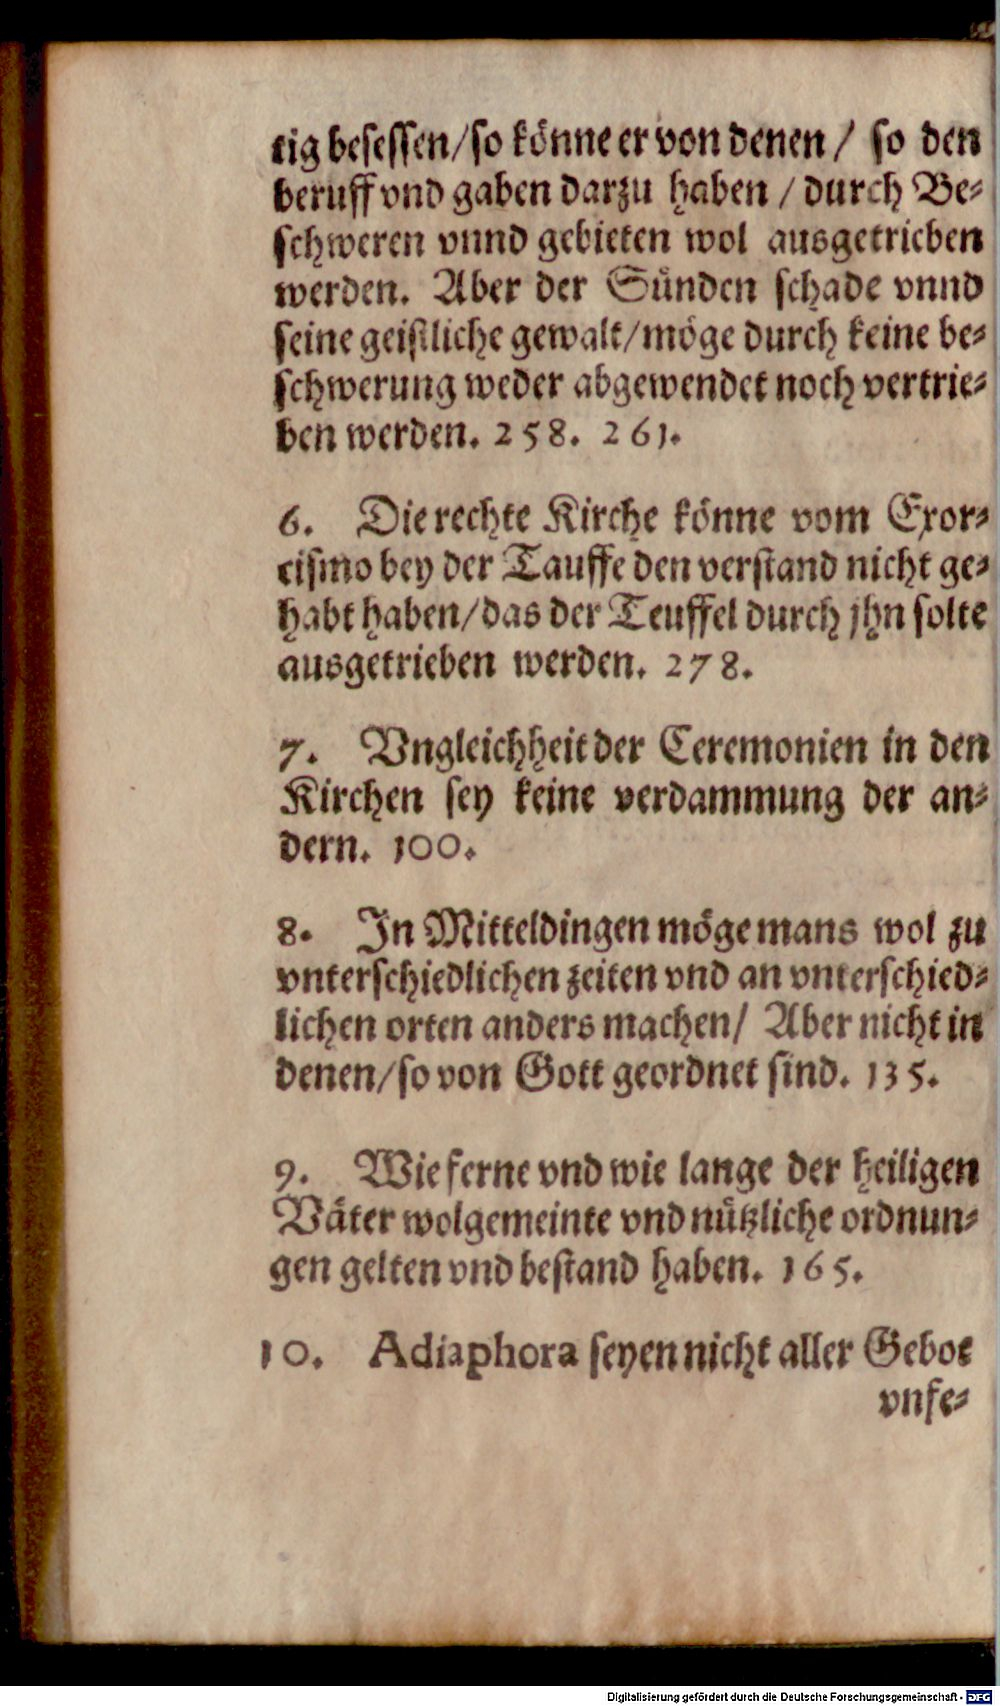 tig besessen/so könne er von denen/ so den
beruff vnd gaben darzu haben/durch Be-
schweren vnnd gebieten wol ausgetrieben
werden. Aber der Sünden schade vnnd
seine geistliche gewalt/möge durch keine be-
schwerung weder abgewendet noch vertrie-
ben werden. 258. 261.
6. Die rechte Kirche könne vom Exor-
cismo bey der Tauffe den verstand nicht ge-
habt haben/das der Teuffel durch jhn solte
ausgetrieben werden. 278.
7. Vngleichheit der Ceremonien in den
Kirchen sey keine verdammung der an-
dern. 100.
8. In Mitteldingen möge mans wol zu
vnterschiedlichen zeiten vnd an vnterschied-
lichen orten anders machen/ Aber nicht in
denen/so von Gott geordnet sind. 135.
9. Wie ferne vnd wie lange der heiligen
Väter wolgemeinte vnd nützliche ordnun-
gen gelten vnd bestand haben. 165.
10. Adiaphora seyen nicht aller Gebot
vnfe-
Digitalisierung gefördert durch die Deutsche Forschungsgemeinschaft - DFG